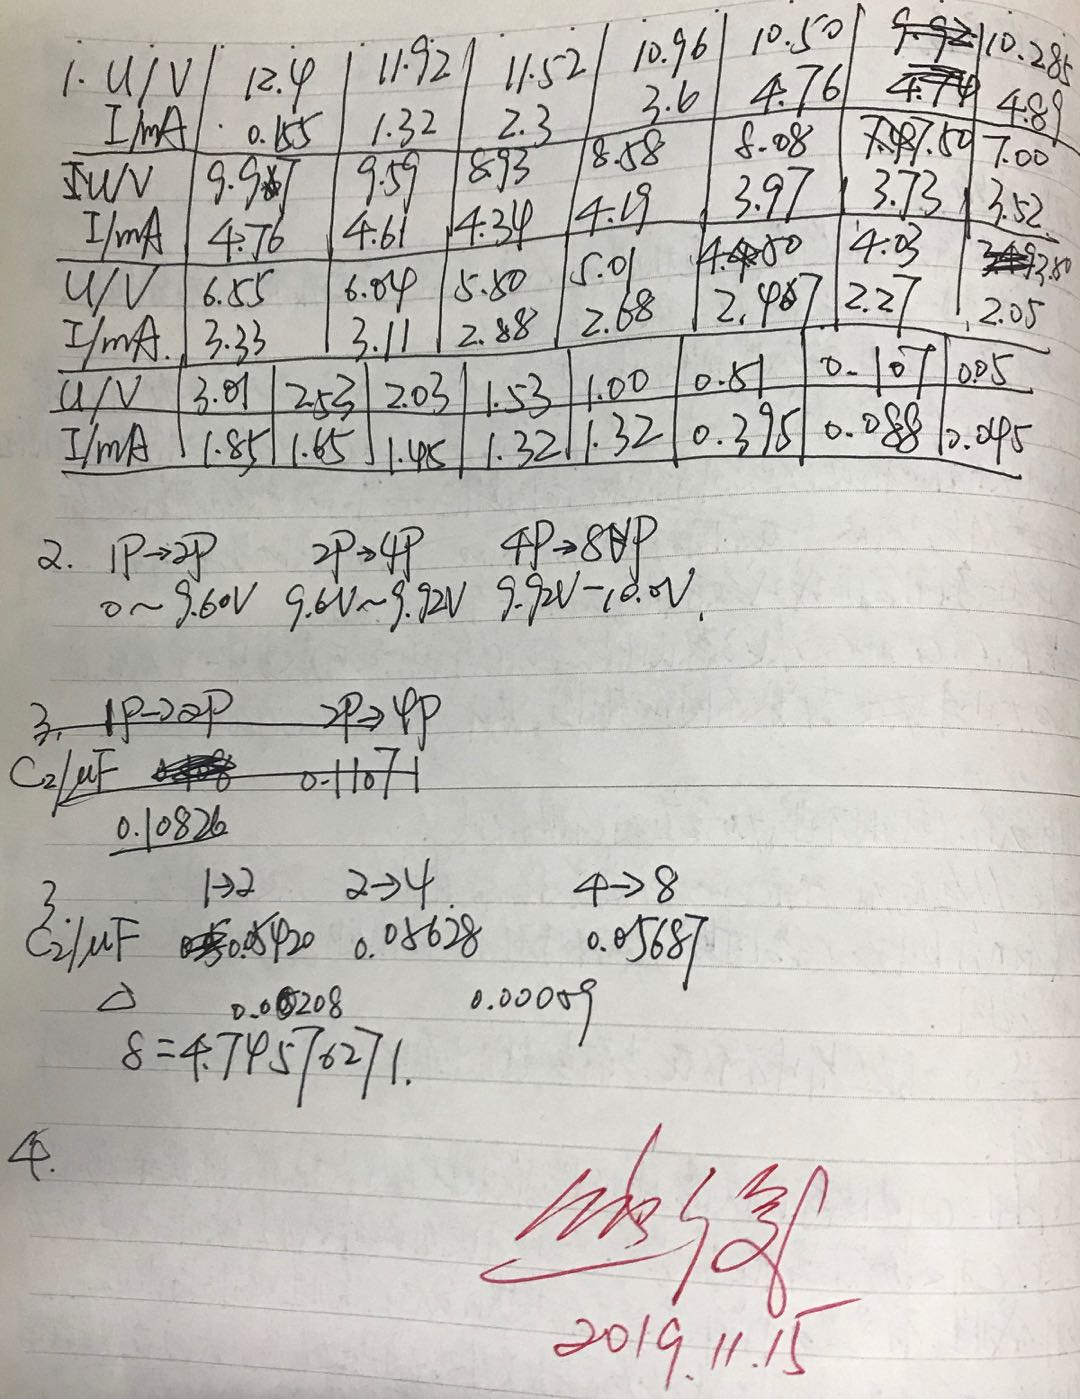 1. U/V 12.4 11.92 11.52 10.96 10.50 9.92 10.285
I/mA 0.155 1.32 2.3 3.6 4.76 4.74 4.89
U/V 9.97 9.59 8.93 8.58 8.08 7.50 7.00
I/mA 4.76 4.61 4.34 4.19 3.97 3.73 3.52
U/V 6.55 6.04 5.50 5.01 4.50 4.03 3.50
I/mA 3.33 3.11 2.88 2.68 2.467 2.27 2.05
U/V 3.01 2.53 2.03 1.53 1.00 0.51 0.107 0.05
I/mA 1.85 1.65 1.45 1.32 1.32 0.395 0.088 0.045
2. 1P→2P 2P→4P 4P→8P
0~9.60V 9.6V~9.92V 9.92V-10.0V.
3. 1P→2P 2P→4P
C2/μF 0.11071
0.10826
3. 1→2 2→4 4→8
C2/μF 0.05420 0.05628 0.05687
△ 0.00208 0.00059
8=4.74576271.
4.
2019.11.15